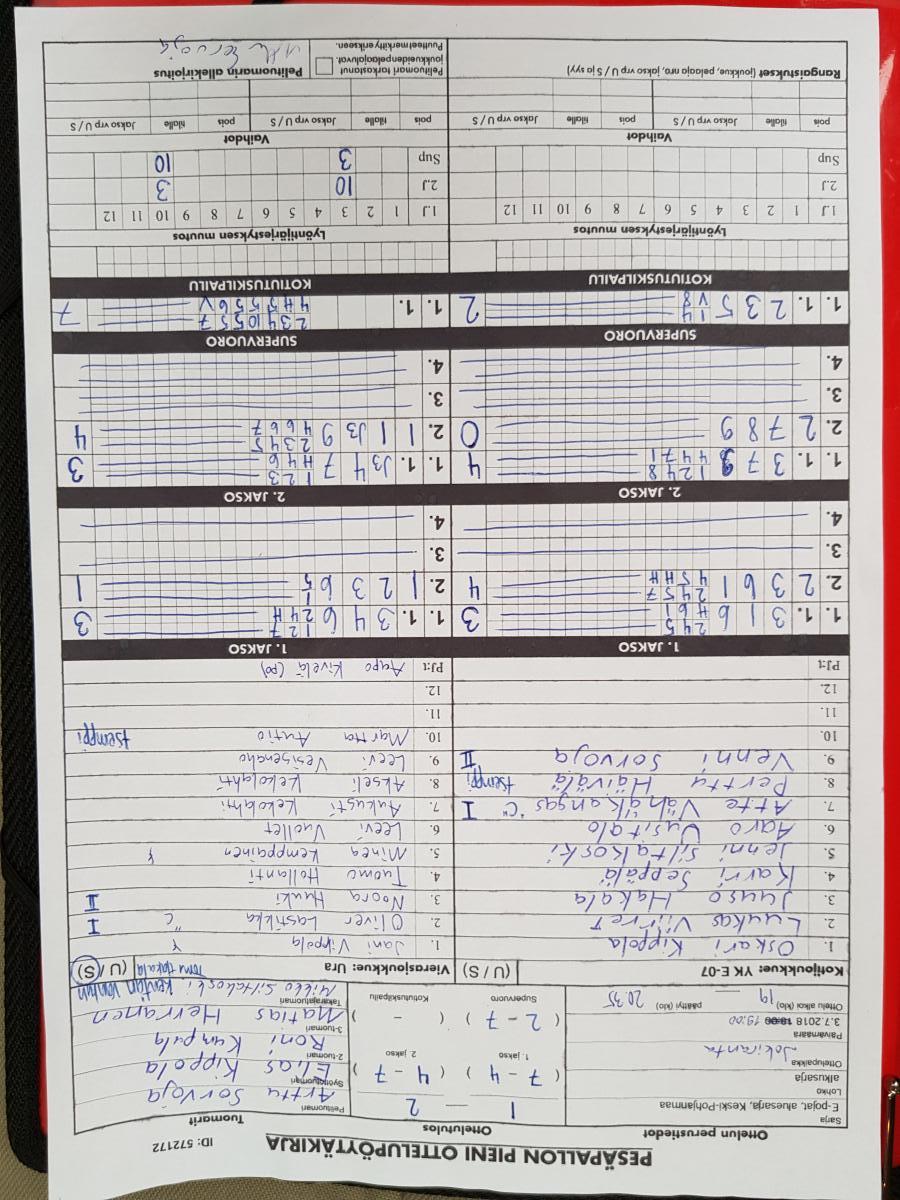 PESÄPALLON PIENI OTTELUPÖYTÄKIRJA
ID: 572172
Ottelun perustiedot
Sarja
E-pojat, aluesarja, Keski-Pohjanmaa
Lohko
alkusarja
Ottelupaikka
Jokiranta
Päivämäärä
3.7.2018 19.00
Ottelu alkoi (klo) 19 päättyi (klo) 20.35
Ottelutulos
1 — 2
1. jakso 2. jakso
( 7 - 4 ) ( 4 - 7 )
Supervuoro Kotiutuskilpailu
( 2 - 7 ) ( - )
Tuomarit
Pelituomari
Arttu Sorvoja
Syöttötuomari
Elias Kippola
2-tuomari
Roni Kumpula
3-tuomari
Matias Herranen
Takarajatuomari
Mikko Siltakoski
Kotijoukkue: YK E-07 (U / S)
1. Oskari Kippola
2. Luukas Viirret
3. Juuso Hakala
4. Karri Seppälä
5. Jenni Siltakoski
6. Aaro Uusitalo
7. Atte Vähäkangas "C" I
8. Perttu Häivälä tsemppi
9. Venni Sorvoja II
10.
11.
12.
PJ:t
Vierasjoukkue: Ura (U / S)
1. Jani Vippola Y
2. Oliver Lastikka C I
3. Noora Huuki II
4. Tuomo Hollanti
5. Minea Kemppainen Y
6. Leevi Vuollet
7. Aukusti Kekolahti
8. Akseli Kekolahti
9. Leevi Vesisenaho
10. Martta Autio tsemppi
11.
12.
PJ:t Aapo Kivelä (po)
1. JAKSO
1. 1. 3 1 6 1 2 4 5 3
H 6 1
2. 2 3 6 1 2 4 5 7 4
4 5 H H
3.
4.
1. JAKSO
1. 1. 3 4 6 1 2 7 3
2 4 H
2. 1 2 3 6 1 1
5
3.
4.
2. JAKSO
1. 1. 3 7 1 2 4 8 4
4 4 7 1
2. 2 7 8 9 0
3.
4.
2. JAKSO
1. 1. J3 4 7 1 2 3 3
H 4 6
2. 1 1 J3 9 2 3 4 5 4
4 6 6 7
3.
4.
SUPERVUORO
1. 1. 2 3 5 1 4 2
V 8
SUPERVUORO
1. 1. 2 3 4 10 5 5 7 7
4 H 5 5 5 6 V
KOTIUTUSKILPAILU
KOTIUTUSKILPAILU
Lyöntijärjestyksen muutos
1.J 1 2 3 4 5 6 7 8 9 10 11 12
2.J
Sup
Lyöntijärjestyksen muutos
1.J 1 2 3 4 5 6 7 8 9 10 11 12
2.J 10 3
Sup 3 10
Vaihdot
pois tilalle Jakso vrp U / S pois tilalle Jakso vrp U / S
Vaihdot
pois tilalle Jakso vrp U / S pois tilalle Jakso vrp U / S
Rangaistukset (joukkue, pelaaja nro, jakso vrp U / S ja syy)
Pelituomari tarkastanut
joukkueiden pelaajaluvat.
Puutteet merkitty erikseen.
Pelituomarin allekirjoitus